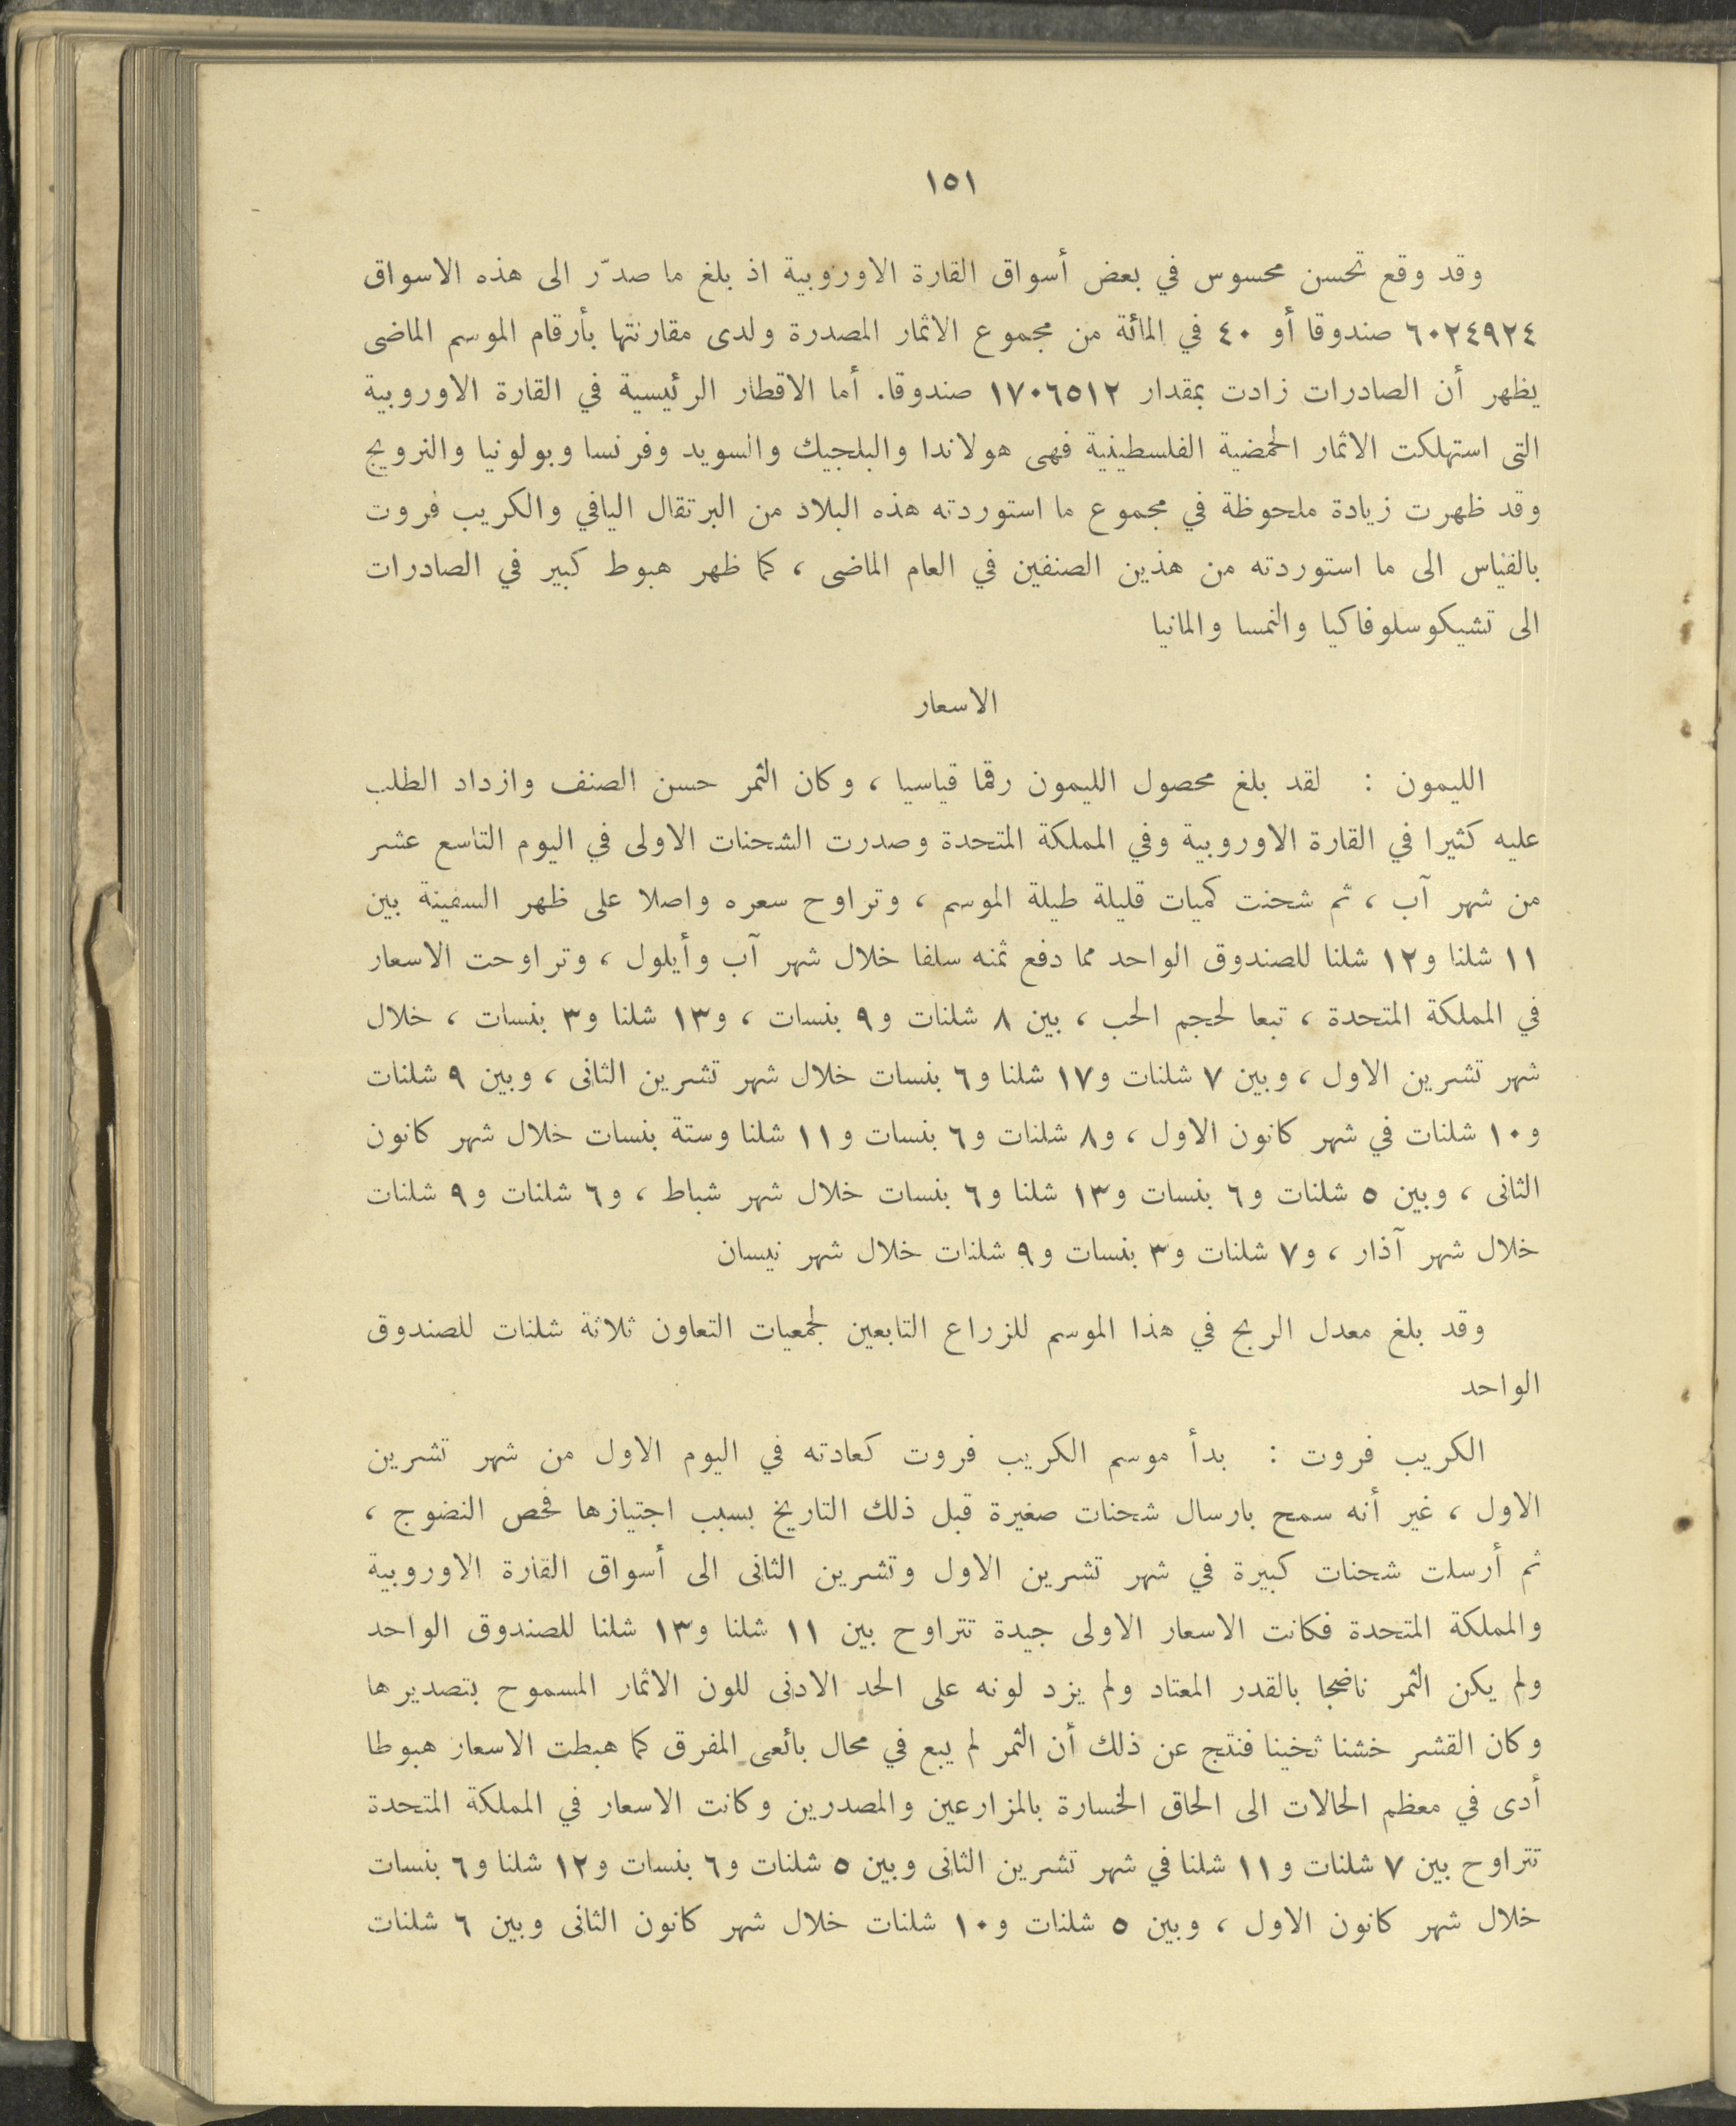 ١٥١
وقد وقع تحسن محسوس في بعض أسواق القارة الاوروبية اذ بلغ ما صدّر الى هذه الاسواق
٦٠٢٤٩٢٤ صندوقا أو ٤٠ في المائة من مجموع الاثمار المصدرة ولدى مقارنتها بأرقام الموسم الماضى
يظهر أن الصادرات زادت بمقدار ١٧٠٦٥١٢ صندوقا. أما الاقطار الرئيسية في القارة الاوروبية
التى استهلكت الاثمار الحمضية الفلسطينية فهى هولاندا والبلجيك والسويد وفرنسا وبولونيا والنرويج
وقد ظهرت زيادة ملحوظة في مجموع ما استوردته هذه البلاد من البرتقال اليافي والكريب فروت
بالقياس الى ما استوردته من هذين الصنفين في العام الماضى ، كما ظهر هبوط كبير في الصادرات
الى تشيكوسلوفاكيا والنمسا والمانيا
الاسعار
الليمون : لقد بلغ محصول الليمون رقما قياسيا ، وكان الثمر حسن الصنف وازداد الطلب
عليه كثيرا في القارة الاوروبية وفي المملكة المتحدة وصدرت الشحنات الاولى في اليوم التاسع عشر
من شهر آب ، ثم شحنت كميات قليلة طيلة الموسم ، وتراوح سعره واصلا على ظهر السفينة بين
١١ شلنا و١٢ شلنا للصندوق الواحد مما دفع ثمنه سلفا خلال شهر آب وأيلول ، وتراوحت الاسعار
في المملكة المتحدة ، تبعا لحجم الحب ، بين ٨ شلنات و٩ بنسات ، و١٣ شلنا و٣ بنسات ، خلال
شهر تشرين الاول ، وبين ٧ شلنات و١٧ شلنا و٦ بنسات خلال شهر تشرين الثانى ، وبين ٩ شلنات
و١٠ شلنات في شهر كانون الاول ، و٨ شلنات و٦ بنسات و١١ شلنا وستة بنسات خلال شهر كانون
الثانى ، وبين ٥ شلنات و٦ بنسات و١٣ شلنا و٦ بنسات خلال شهر شباط ، و٦ شلنات و٩ شلنات
خلال شهر آذار ، و٧ شلنات و٣ بنسات و٩ شلنات خلال شهر نيسان
وقد بلغ معدل الربح في هذا الموسم للزراع التابعين لجمعيات التعاون ثلاثة شلنات للصندوق
الواحد
الكريب فروت : بدأ موسم الكريب فروت كعادته في اليوم الاول من شهر تشرين
الاول ، غير أنه سمح بارسال شحنات صغيرة قبل ذلك التاريخ بسبب اجتيازها فحص النضوج ،
ثم أرسلت شحنات كبيرة في شهر تشرين الاول وتشرين الثانى الى أسواق القارة الاوروبية
والمملكة المتحدة فكانت الاسعار الاولى جيدة تتراوح بين ١١ شلنا و١٣ شلنا للصندوق الواحد
ولم يكن الثمر ناضجا بالقدر المعتاد ولم يزد لونه على الحد الادنى للون الاثمار المسموح بتصديرها
وكان القشر خشنا ثخينا فنتج عن ذلك أن الثمر لم يبع في محال بائعى المفرق كما هبطت الاسعار هبوطا
أدى في معظم الحالات الى الحاق الخسارة بالمزارعين والمصدرين وكانت الاسعار في المملكة المتحدة
تتراوح بين ٧ شلنات و١١ شلنا في شهر تشرين الثانى وبين ٥ شلنات و٦ بنسات و١٢ شلنا و٦ بنسات
خلال شهر كانون الاول ، وبين ٥ شلنات و١٠ شلنات خلال شهر كانون الثانى وبين ٦ شلنات